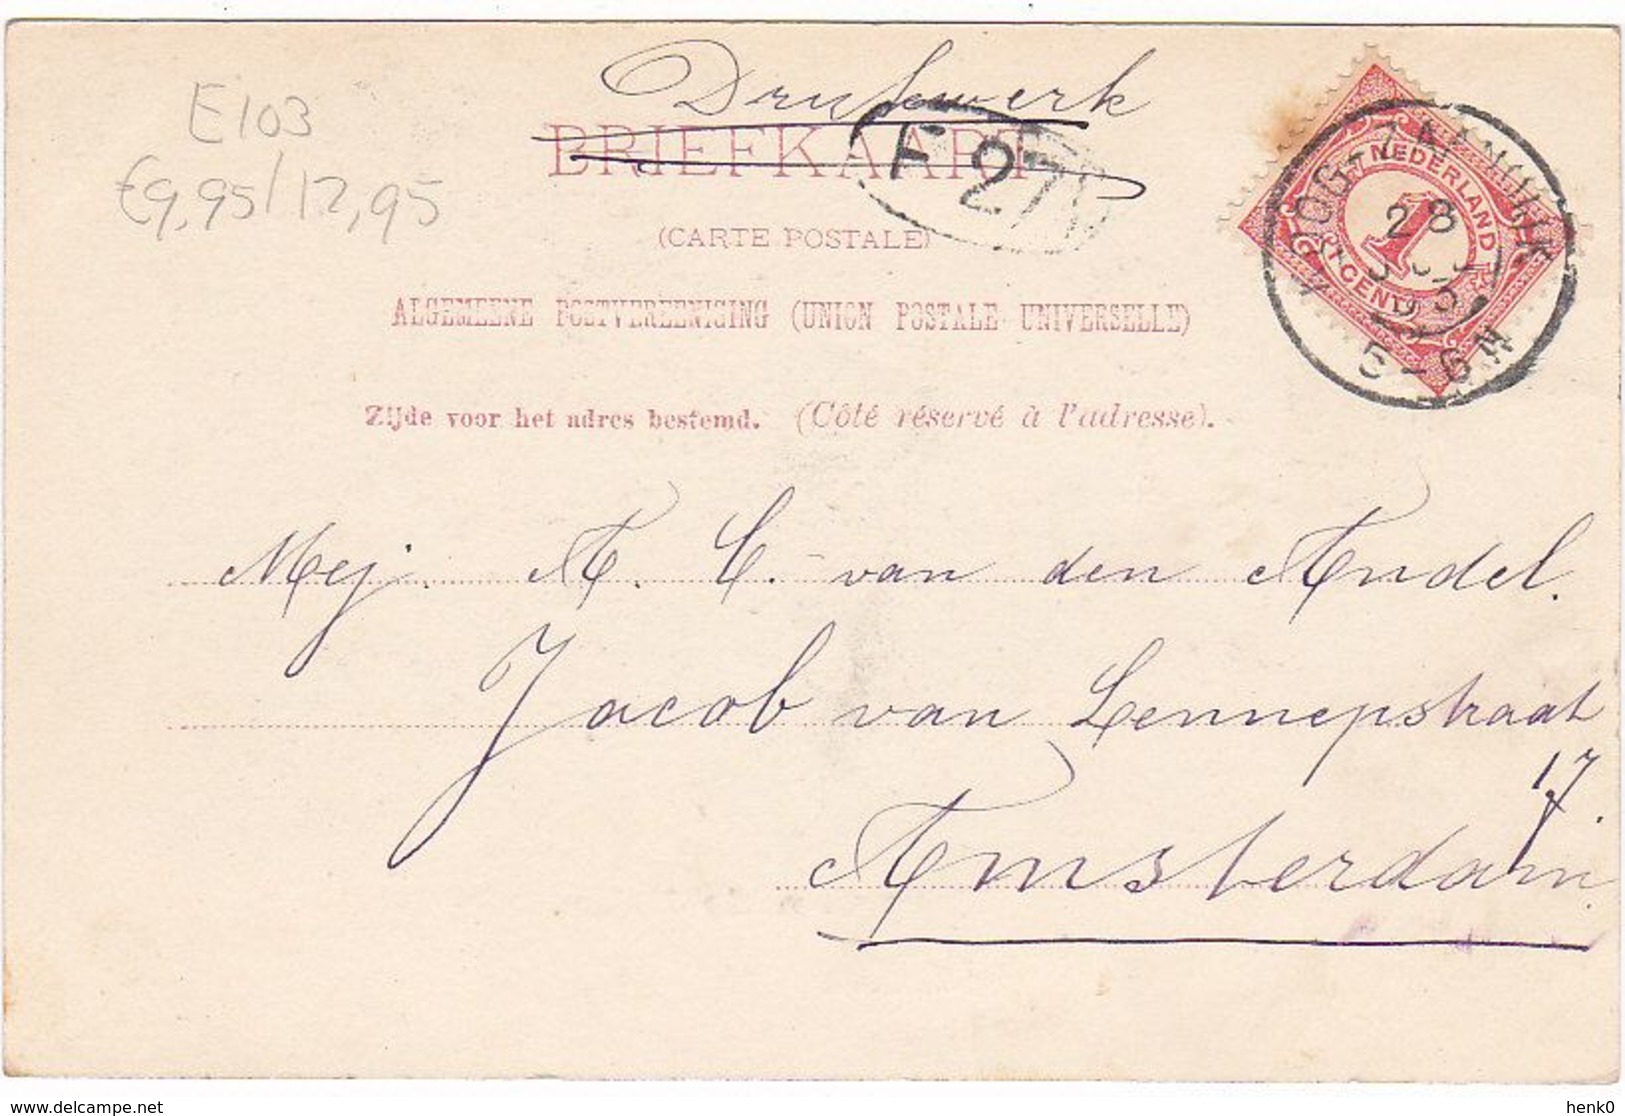 Drukwerk
E103
€9,95/12,95
BRIEFKAART
F 27
(CARTE POSTALE)
ALGEMEENE POSTVEREENIGING (UNION POSTALE UNIVERSELLE)
Zijde voor het adres bestemd. (Côté réservé à l'adresse).
NEDERLAND
1
CENT
28
5-6N
Mej. A. C. van den Andel.
Jacob van Lennepstraat
17.
Amsterdam.
delcampe.net
henk0